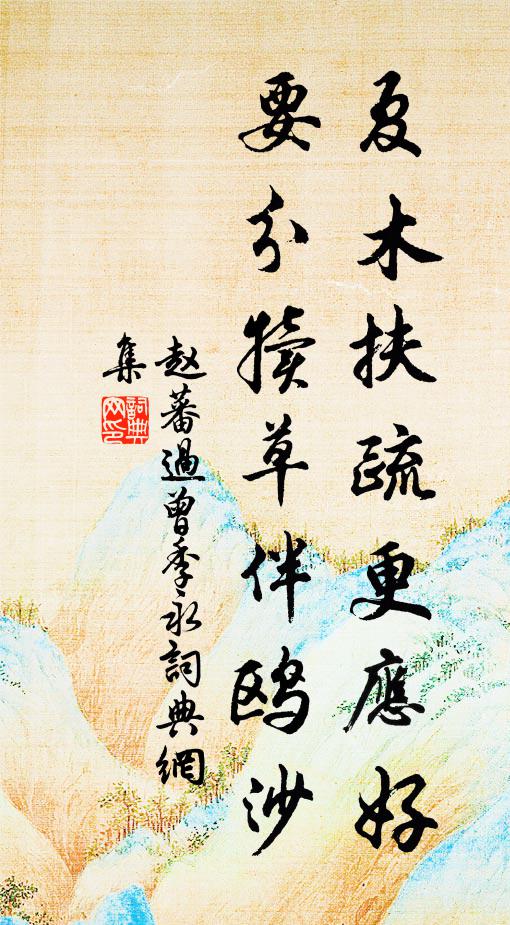 夏木扶疏更應好
要分犢草伴鸥沙
赵蕃過曾季永詞典網
集
詞典網印